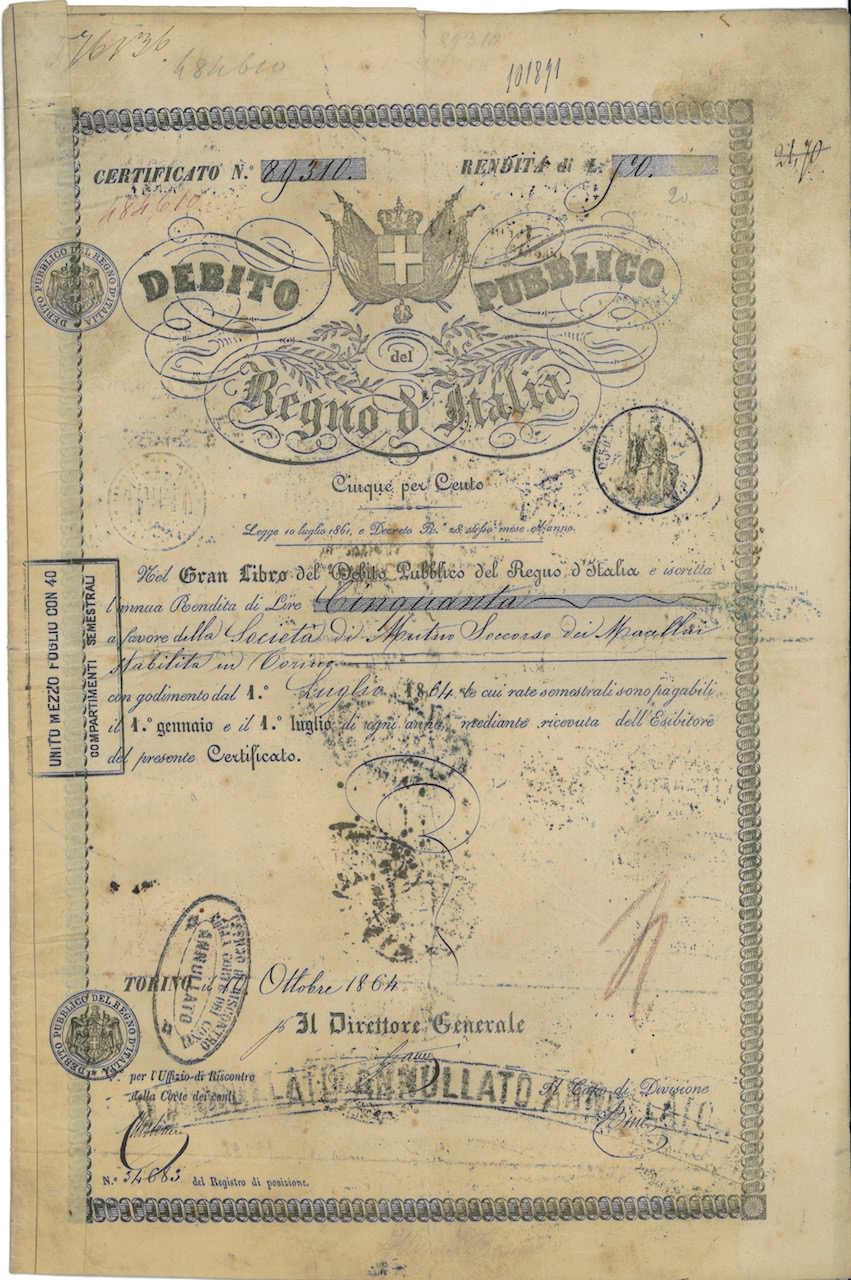 76136
484610
89310
101891
CERTIFICATO N.° 89310. RENDITA di L. 50.
21,70
484610
20
DEBITO PUBBLICO DEL REGNO D'ITALIA
DEBITO PUBBLICO
del
Regno d'Italia
Cinque per Cento
Legge 10 luglio 1861, e Decreto R.° 28 stesso mese ed anno.
Nel Gran Libro del Debito Pubblico del Regno d'Italia è iscritta
l'annua Rendita di Lire Cinquanta
a favore della Società di Mutuo Soccorso dei Macellai
stabilita in Torino
con godimento dal 1.° Luglio 1864 le cui rate semestrali sono pagabili
il 1.° gennaio e il 1.° luglio di ogni anno, mediante ricevuta dell'Esibitore
del presente Certificato.
UNITO MEZZO FOGLIO CON 40
COMPARTIMENTI SEMESTRALI
UFFIZIO DI RISCONTRO
DELLA CORTE DEI CONTI
ANNULLATO
TORINO, il Ottobre 1864
p Il Direttore Generale
DEBITO PUBBLICO DEL REGNO D'ITALIA
per l'Uffizio di Riscontro
della Corte dei conti
Il Capo di Divisione
ANNULLATO ANNULLATO ANNULLATO
N.° 34683 del Registro di posizione.